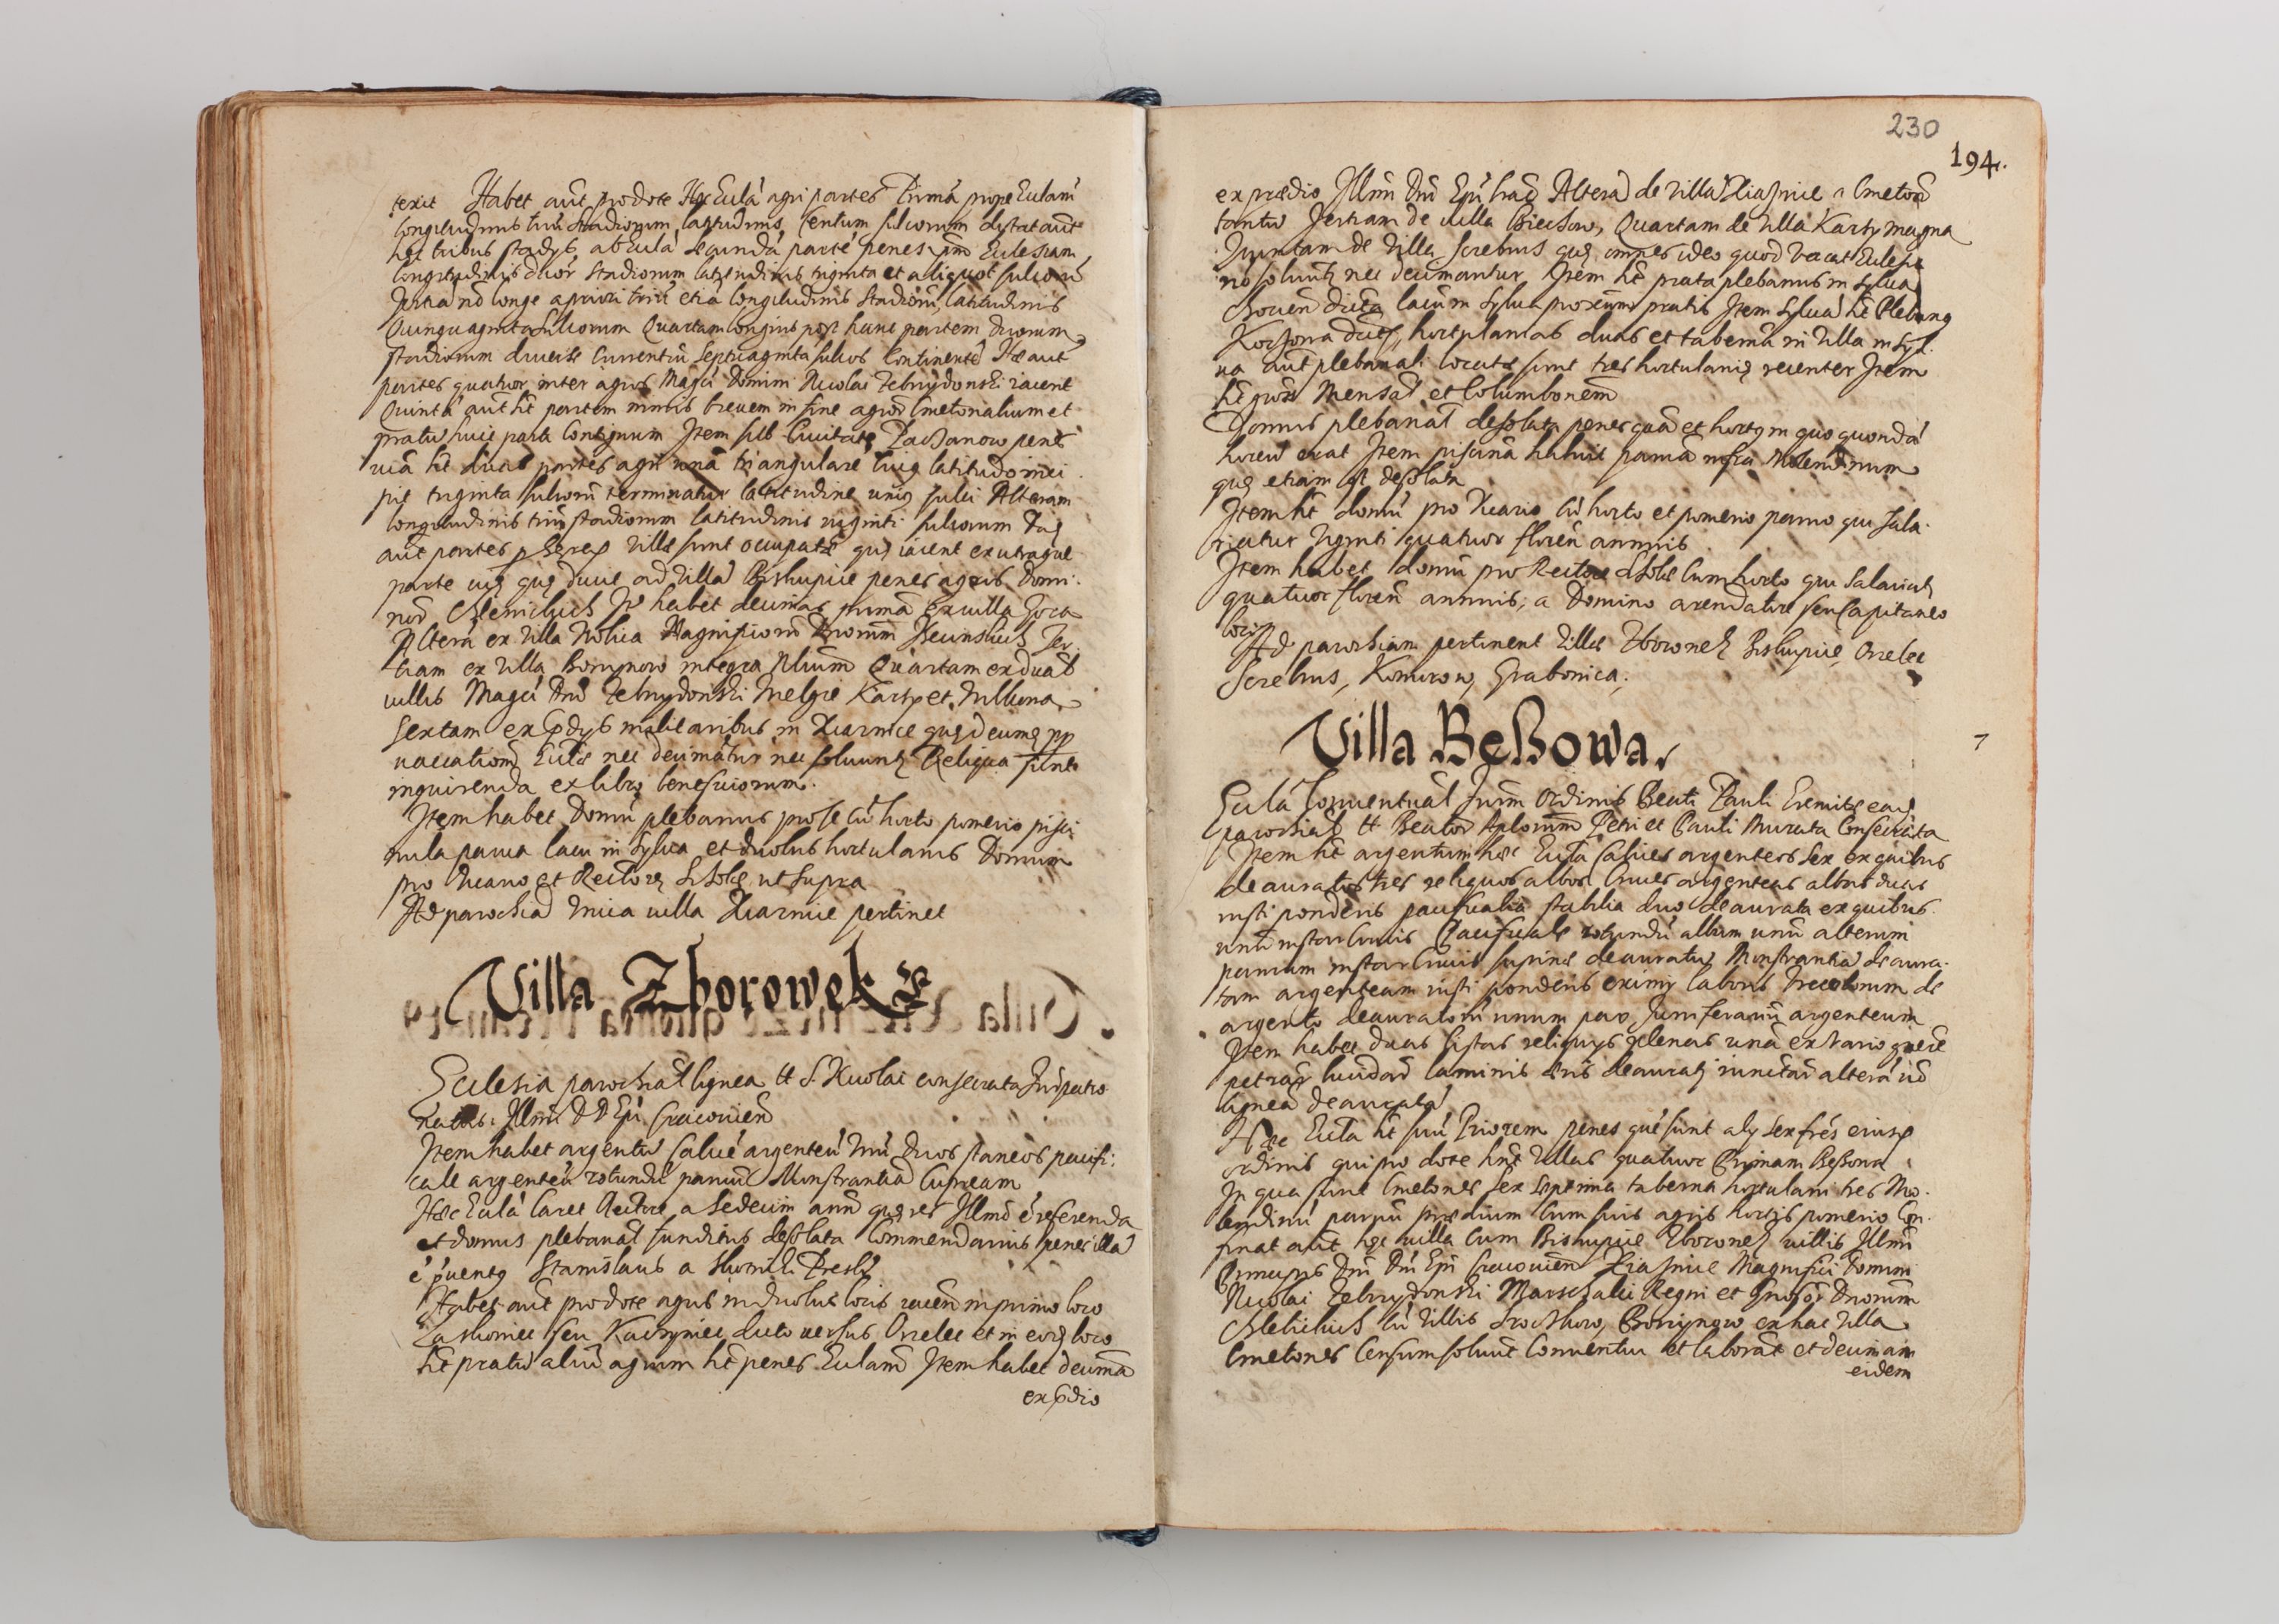 texit Habet aut pro dote Hęc Eccla agri partes Primã prope Eccłam
longitudinis triũ stadiorum latitudinis Centum sulcorum distat aut
hęc tribus stadijs ab Eccła secundã partẽ penes ipm Ecclesiam
longitudinis duor stadiorum latitudinis triginta et aliquot sulcorũ
Tertia nõ longe a priori triũ etiã longitudinis stadiorũ, latitudinis
Quinquaginta sulcorum Quartam longius post hanc partem duorum
stadiorum diverse currentiũ Septuaginta sulcos Continentẽ Hæ aut
partes quatuor inter agros Magci Domini Nicolai Zebrzydowski iacent
Quintã aut ht partem nimis brevem in fine agrorũ Cmetonalium et
pratũ huic parti Contiguum Item sub Civitate Paczanow penes
viã ht duas partes agri unã triangularẽ cuiq latitudo inci
pit triginta sulcorũ terminatur latitudine uniq sulci Alteram
longitudinis triũ stadiorum latitudinis viginti sulcorum Duę
aut partes villæ sunt occupatæ quę iacent ex utraque
parte vię quę ducit ad Villã Biskupice penes agros Domi
norũ Chlewickich Itẽ habet decimas primã ex villa
Alterã ex Villa Wolica Magnificorũ Dnorum Ter
tiam ex Villa Borzynow integra Quartam ex duab
villis Magci Dnĩ Zebrzydowski Karsy et
Sextam ex prædijs militaribus in Xiaznice quę decimę pp
vacationẽ Eccłæ nec decimãtur nec solvunt Reliqua sunt
inquirenda ex libro beneficiorum.
Item habet Domũ plebanus pro se cũ horto pomerio pisci
nula parva lacu in Sylva et duobus hortulanis Domum
pro Vicario et Rectore Scholæ ut supra
Ad parochiã Unica villa Xiaznice pertinet
Villa Zborowek
Ecclesia parochial lignea tt S. Nicolai consecrata Juripatro
natus Illmi D D Epi Cracovien
Item habet argentũ Calicẽ argenteũ Unũ Duos staneos pacifi
cale argenteũ rotundũ parvũ Monstrantiã Cupream
Hæc Eccla Caret Rectore a Sedecim annis quę res Illmo e referenda
et domus plebanal funditus desolata Commendarius penes illã
e Iuventq Stanislaus a Slomniki Presb
Habet aut pro dote agros in duobus locis iacen in primo loco
seu dicto versus Orzelec et in eodẽ loco
ht pratũ aliũ agrum ht penes Eccłam Item habet decimã
ex prædio
230
194.
ex prædio Illmi Dnĩ Epi Altera de Villa Xiaznice a Cmetonĩ
tantũ Tertiam de villa Biechow, Quartam de Villa Karsy magna
Quintam de Villa Szczebrus quę omnes ideo quod vacat Ecclesia
nõ solvunt nec decimantur Item ht prata plebanus in Sylva
dicta lacum sylvæ proximũ pratis Item Sylvã ht Plebanq
dictã hortulanias duas et tabernã in Villa in Syl
va aut plebanali locatæ sunt tres hortulaniæ recenter Item
ht Mensal et Columbonem
Domus plebanal desolata penes quã et hortq in quo quondã
horreũ erat Item piscinã habuit parvã infra Molendinum
quę etiam est desolata
Item ht domũ pro Vicario cũ horto et pomerio parvo qui sala
riatur viginti quatuor floren annuis
Item habet domũ pro Rectore Scholæ Cum horto qui salariatr
quatuor floren annuis, a Domino arendatore seu Capitaneo
loci
Ad parochiam pertinent Villæ Zborowek Biskupice, Orzelec
Szczebrus, Komorow, Grabonica.
Villa Beßowa.
7
Eccla Conventual Frum Ordinis Beati Pauli Eremitæ eadę
parochial tt Beatorũ Aplorum Petri et Pauli Murata Consecrata
Item ht argentum hæc Eccla Calices argenteos sex ex quibus
deauratos tres reliquos albos Cruces argenteas albas duas
iusti ponderis pacificalia stabilia duo deaurata ex quibus
unũ instar Crucis Pacificale rotundũ album unũ alterum
parvum instar Crucis supinæ deauratũ Monstrantiã deaura
tam argenteam iusti ponderis eximij laboris Urceolorum de
argento deauratorũ unum par Turriferariũ argenteum
Item habet duas Cistas reliquijs plenas unã ex vario genere
petrarũ lucidarũ laminis æris deaurati iunctarũ alterã võ
ligneã deauratã
Hæc Eccla ht suũ Priorem penes quẽ sunt alij sex frẽs eiusdẽ
ordinis qui pro dote hnt Villas quatuor Primam Beßowa
In qua sunt Cmetones sex septima taberna hortulani tres Mo
lendinũ parvũ prædium Cum suis agris hortis pomerio Con
finat aut hęc villa Cum Biskupice Zborowek villis Illmi
Principis Dnĩ Dnĩ Epi Cracovien Xiaznice Magnifici Domini
Nicolai Zebrzydowski Marschalci Regni et Gnosor Dnorum
Chlewickich cũ Villis Borzynow ex hac Villa
Cmetones Censum solvunt Conventui et laborãt et decimam
eidem